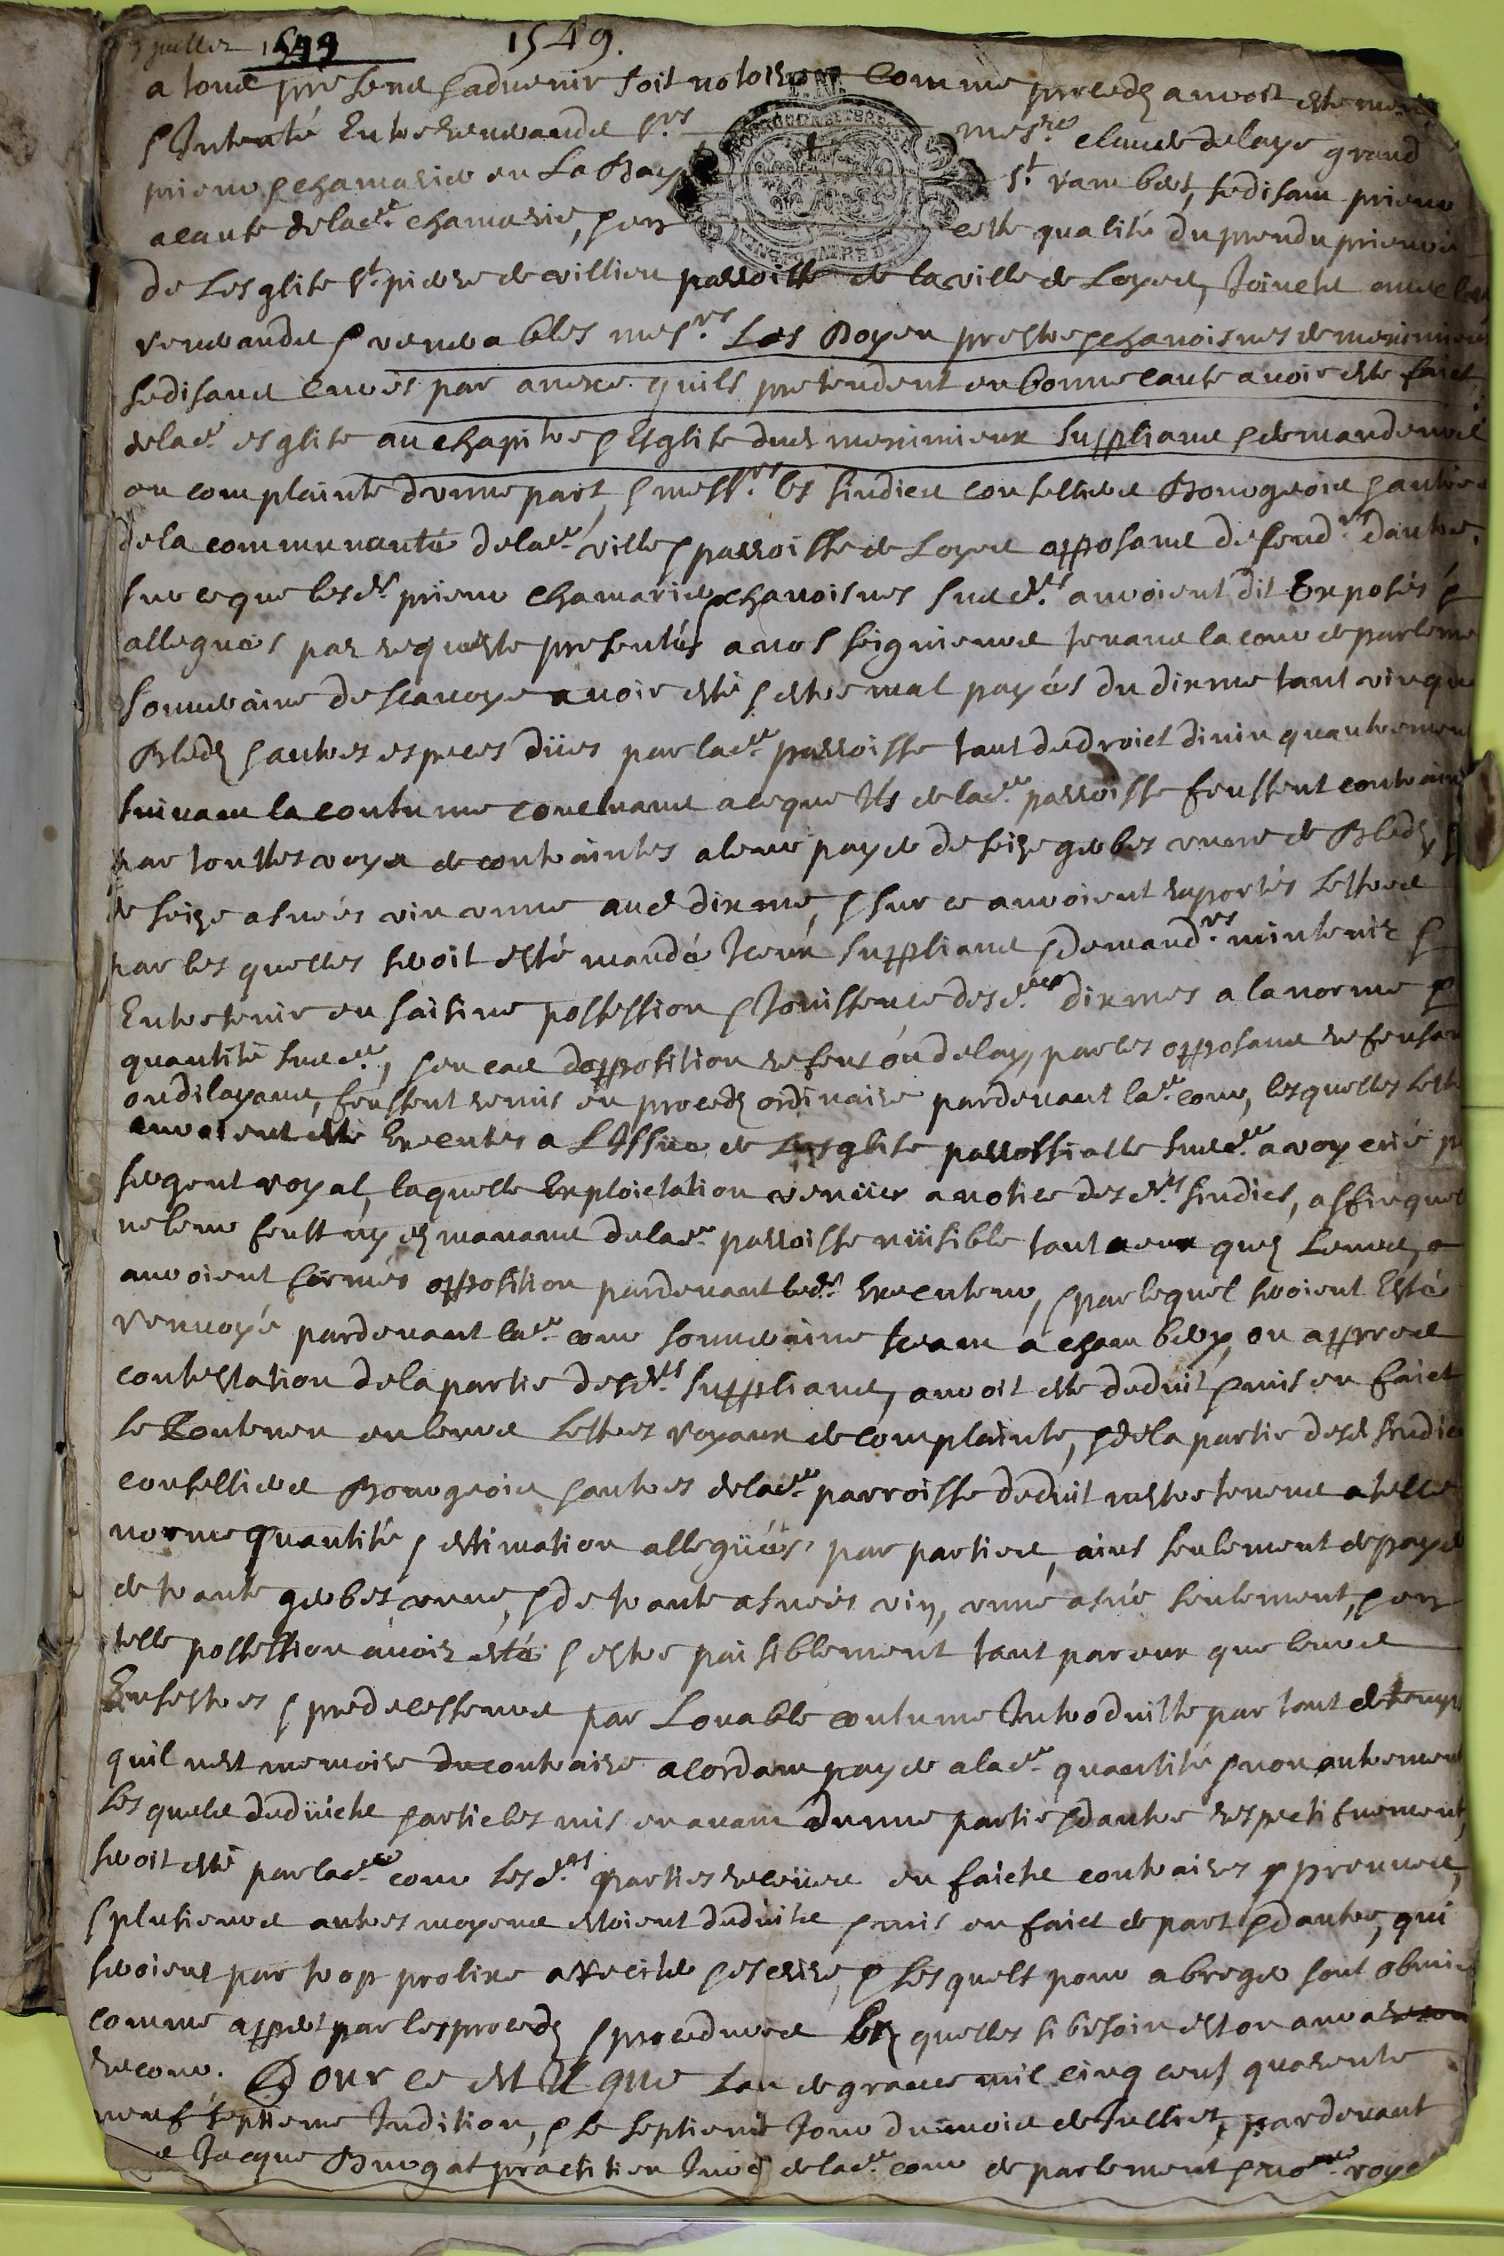 7 juillet 1549
1549.
a tous present & advenir soit notoire Comme procedz auroit esté meu
& Intenté Entre Reverands srs mesre claude delaye grand
prieur & chamarier en La Bay st rambert, se disam prieur
acaute de lade chamarie, & en ceste qualité du prendu prieuré
de Lesglise st piere de villieu parroisse de la ville de Loyes, Joincts avec
reverands & venerables mesrs Les Doyen prestres chanoisnes de meximieux
se disans Curés par anexe quils pretendent en bonne caute avoir esté faict
de lade esglise au chapitre & Esglise dud meximieux supplians & demandeurs
en complainte dunne part, & messrs les sindics conselliers Bourgeois & autres
de la communauté de lade ville & parroisse de Loyes opposans defendrs dautre,
sur ce que lesds prieur chamarier & chanoisnes susds avoient dit Exposés &
allegués par requeste presentés a nos seignieurs tenans la cour de parleme
souveraine de scavoye avoir esté & estre mal payés du dixme tant vin que
Bledz & autres especes düés par lade parroisse tant de droict divin quautrement
suivam la coutume concluans a ce que Ils de lade parroisse feussent contrains
par touttes voyes de contraintes a leur payer de seize gerbes unne de Bledz, &
de seize asnées vin unne aud dixme, & sur ce auroient raportés lettres
par les quelles seroit esté mandé Iceux supplians & demandrs mintenir &
Entretenir en saisine possession & Jouissence desdes dixmes a la norme &
quantité susde, & en cas dopposition refeus ou delay, par les opposans refusan
ou dilayans, feussent remis en procedz ordinaire pardevant lade cour, lesquelles lettres
auroient esté Executés a L'Issüe de Lesglise parrossialle susde a voy crié p
sergent royal, laquelle Exploictation venüe a notice desds sindics, affin quel
ne leur feust ny es manans de lade parroisse nüisible tant a eux que Leurs,
auroient formés opposition pardevant ledt Executeur, & par lequel seroient Esté
renvoyé pardevant lade cour souveraine seam a chambery, ou appres
contestation de la partie desds supplians, auroit esté deduit & mis en faict
le Contenu en leurs lettres royaux de complainte, & de la partie desd sindics
conselliers Bourgeois & autres de lade parroisse deduit nestre tenus a telle
norme quantité & estimation allegüées par parties, ains seulement de payer
de trante gerbes, unne, & de trante asnées vin, unne asnée seulement, & en
telle possession avoir esté & estre paisiblement tant par eux que leurs
Ensestres & predecesseurs par Louable coutume Introduitte par tant de temps
quil nest memoire du contraire acordam payer a lade quantité & non autrement
Les quels deduicts & articles mis en avam dunne partie & dautre respectifvement,
seroit esté par lade cour lesds parties receües en faicts contraires & preuves,
& plusieurs autres moyens estoient deduits & mis en faict de part & dautre, qui
seroient par trop prolixe a reciter & escrire, & lesquels pour abreger sont obmis
comme appert par les procedz & procedures Es quelles si besoin est on aura
recour. Pour ce est Il que Lan de grace mil cinq cens quarente
neuf septieme Indition, & le septieme Jour du mois de Juillet, pardevant
Jacque Burgat practitien Juré de lade cour de parlement & nore royal